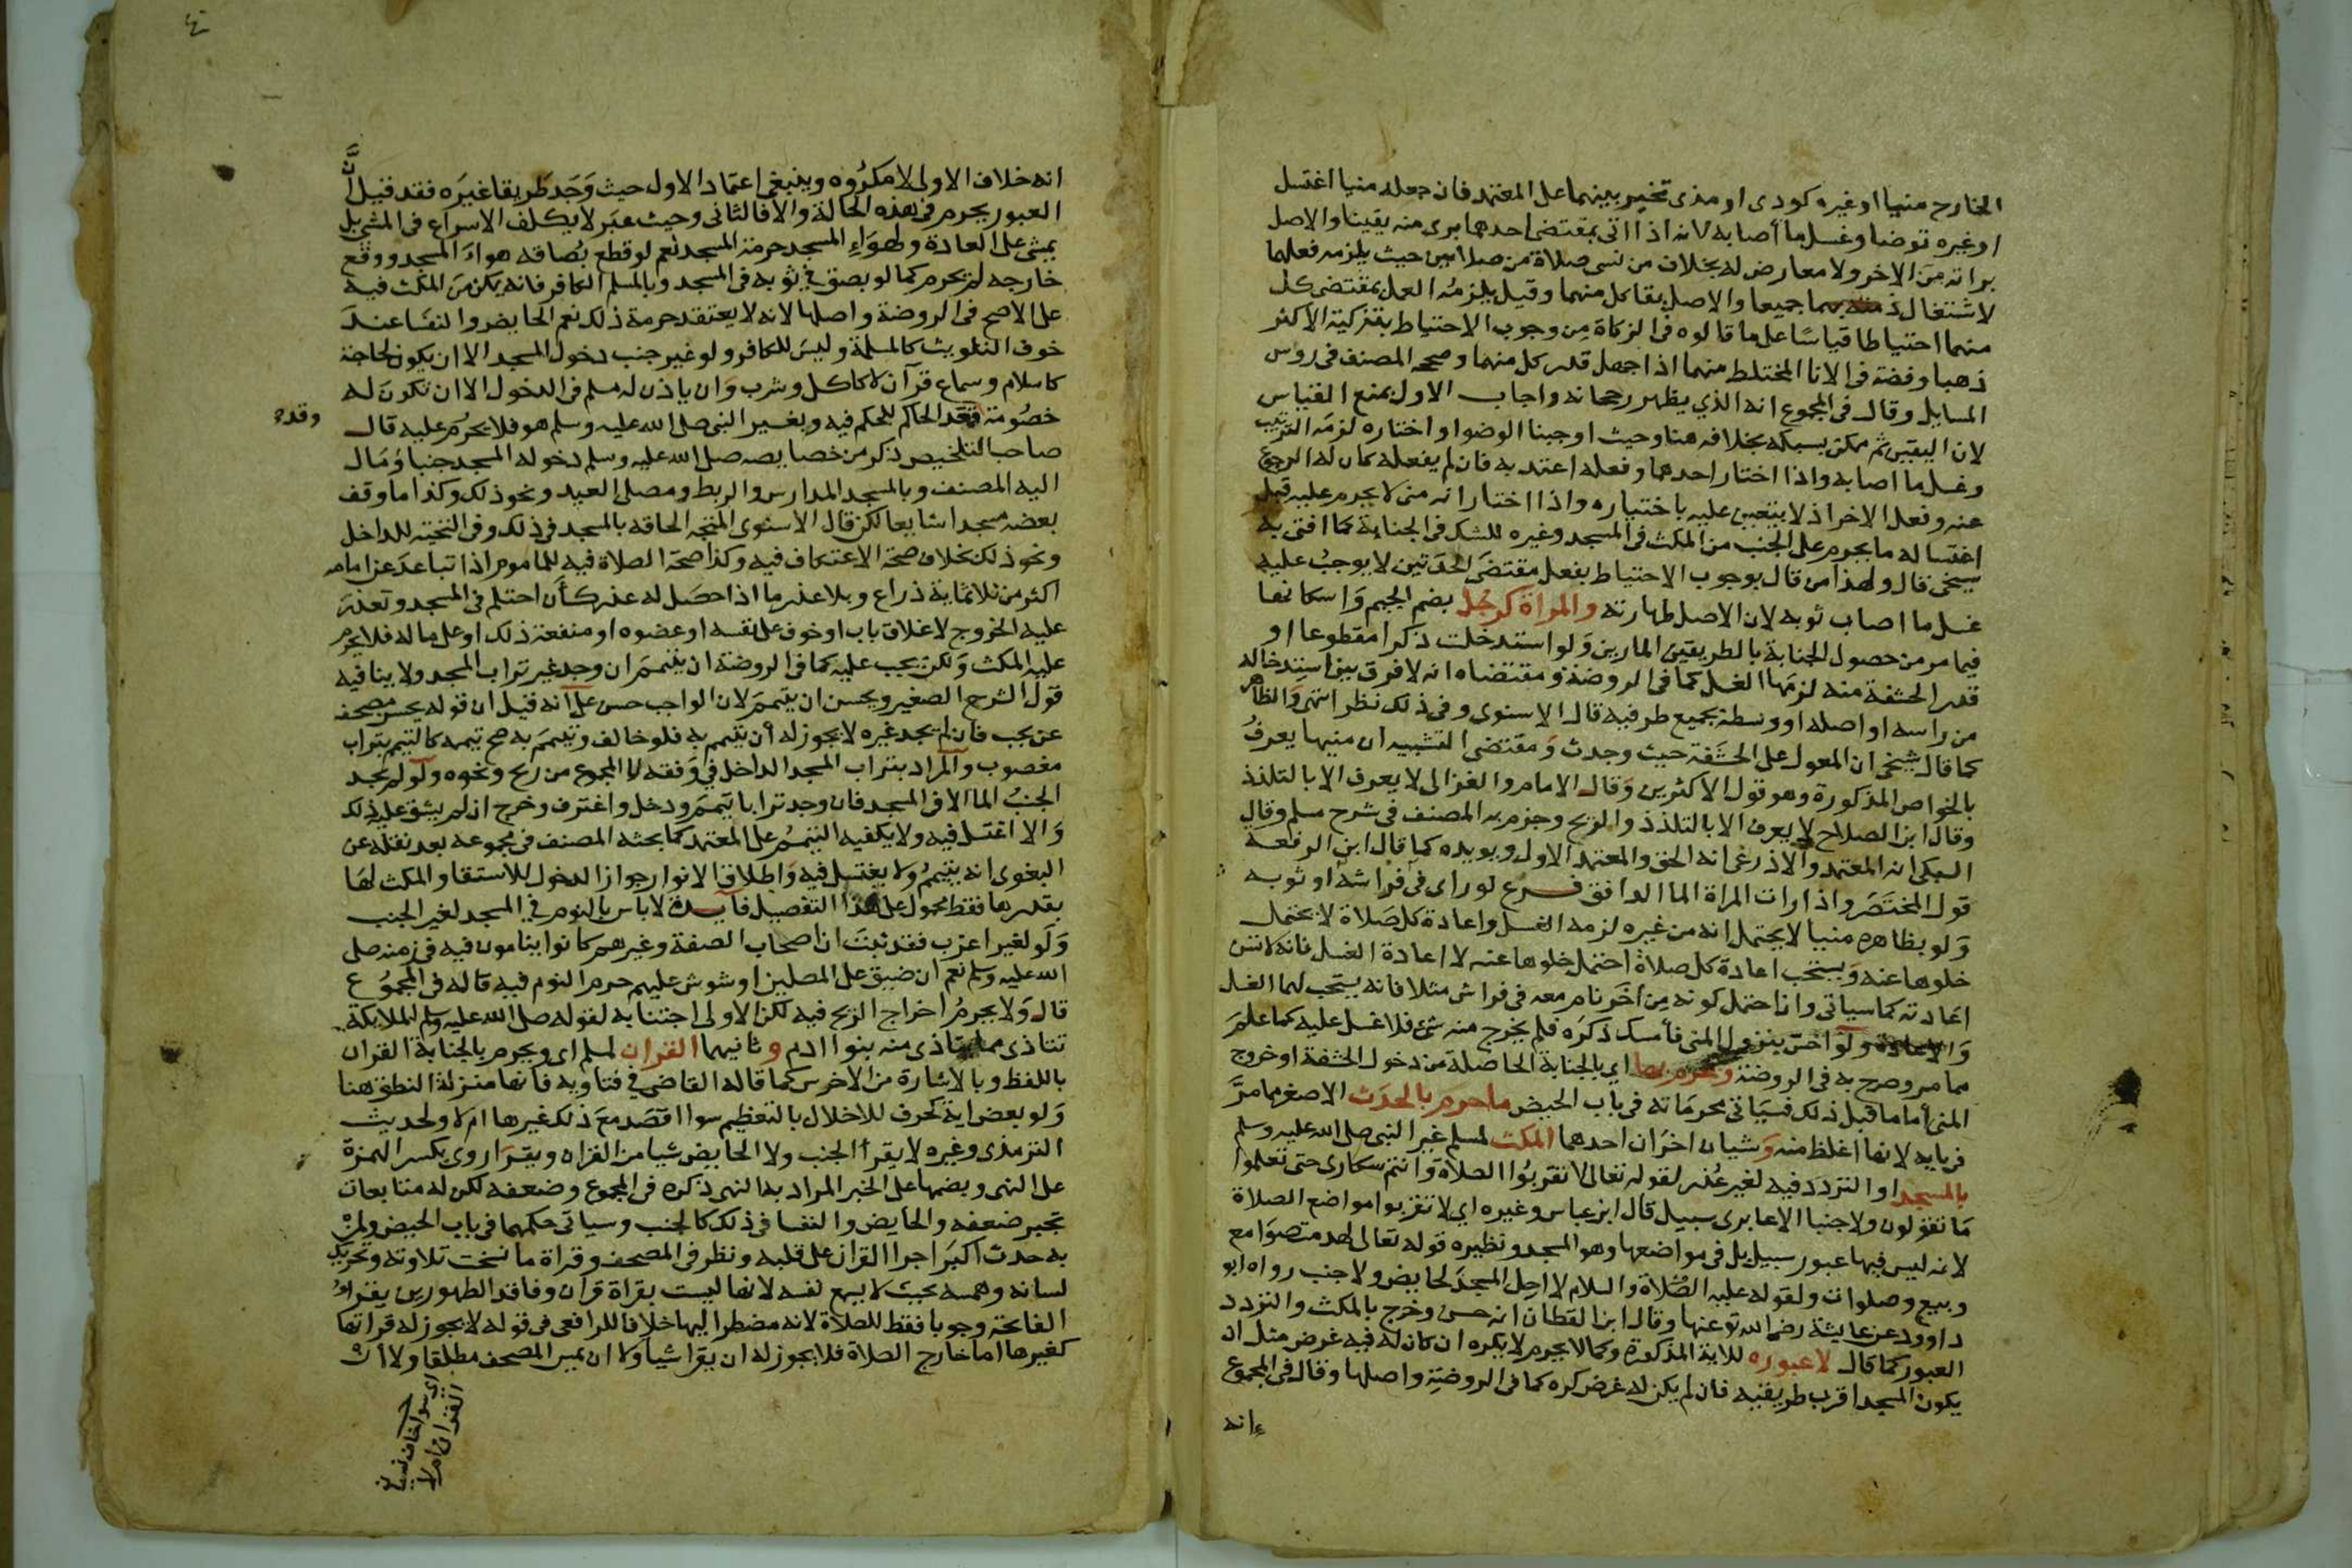 الخارج منيا او غيره كودى او مذى تخير بينهما على المعتمد فان جعله منيا اغتسل
او غيره توضا وغسل ما أصابه لانه اذا اتى بمقتضى احدهما برى منه يقينا والاصل
براته من الاخر ولا معارض له بخلاف من نسى صلاة من صلاتين حيث يلزمه فعلهما
لاشتغال ذمته بهما جميعا والاصل بقا كل منهما وقيل يلزمه العمل بمقتضى كل
منهما احتياطا قياسا على ما قالوه فى الزكاة من وجوب الاحتياط بتزكية الاكثر
ذهبا وفضة فى الانا المختلط منهما اذا جهل قدر كل منهما وصححه المصنف فى روس
المسايل وقال فى المجموع انه الذي يظهر رجحانه واجاب الاول بمنع القياس
لان اليقين ثم ممكن بسبكه بخلافه هنا وحيث اوجبنا الوضوا واختاره لزمه الترتيب
وغسل ما اصابه واذا اختار احدهما وفعله اعتد به فان لم يفعله كان له الرجوع
عنه وفعل الاخر اذ لا يتعين عليه باختياره واذا اختار انه منى لا يحرم عليه قبل
اغتساله ما يحرم على الجنب من المكث فى المسجد وغيره للشك فى الجنابة كما افتى به
شيخى قال ولهذا من قال بوجوب الاحتياط بفعل مقتضى الحدثين لا يوجب عليه
غسل ما اصاب ثوبه لان الاصل طهارته والمراة كرجل بضم الجيم واسكانها
فيما مر من حصول الجنابة بالطريقين المارين ولو استدخلت ذكرا مقطوعا او
قدر الحشفة منه لزمها الغسل كما فى الروضة ومقتضاه انه لا فرق بين استدخاله
من راسه او اصله او وسطه بجميع طرفيه قال الاسنوى وفى ذلك نظر انتهى والظاهر
كما قال شيخى ان المعول على الحشفة حيث وجدت ومقتضى التشبيه ان منيها يعرف
بالخواص المذكورة وهو قول الاكثرين وقال الامام والغزالى لا يعرف الا بالتلذذ
وقال ابن الصلاح لا يعرف الا بالتلذذ والريح وجزم به المصنف فى شرح مسلم وقال
السبكى انه المعتمد والاذرعى انه الحق والمعتمد الاول ويويده كما قال ابن الرفعة
قول المختصر واذا رات المراة الما الدافق فرع لو راى فى فراشه او ثوبه
ولو بظاهره منيا لا يحتمل انه من غيره لزمه الغسل واعادة كل صلاة لا يحتمل
خلوها عنه ويستحب اعادة كل صلاة احتمل خلوها عنه لا اعادة الغسل فانه لا تسن
اعادته كما سياتى وان احتمل كونه من اخر نام معه فى فراش مثلا فانه يستحب لهما الغسل
والاعادة ولو احس بنزول المنى فأمسك ذكره فلم يخرج منه شئ فلا غسل عليه كما علم
مما مر وصرح به فى الروضة ويحرم بها اي بالجنابة الحاصلة من دخول الحشفة او خروج
المنى أما ما قبل ذلك فسياتى محرماته فى باب الحيض ما حرم بالحدث الاصغر مما مر
فى بابه لانها اغلظ منه وشيان اخران احدهما المكث لمسلم غير النبى صلى الله عليه وسلم
بالمسجد او التردد فيه لغير عذر لقوله تعالى لا تقربوا الصلاة وانتم سكارى حتى تعلموا
ما تقولون ولا جنبا الا عابرى سبيل قال ابن عباس وغيره اي لا تقربوا مواضع الصلاة
لانه ليس فيها عبور سبيل بل فى مواضعها وهو المسجد ونظيره قوله تعالى لهدمت صوامع
وبيع وصلوات ولقوله عليه الصلاة والسلام لا احل المسجد لحايض ولا جنب رواه ابو
داوود عن عايشة رضى الله تع عنها وقال ابن القطان انه حسن وخرج بالمكث والتردد
العبور كما قال لا عبوره للاية المذكورة وكما لا يحرم لا يكره ان كان له فيه غرض مثل ان
يكون المسجد اقرب طريقيه فان لم يكن له غرض كره كما فى الروضة واصلها وقال فى المجموع
انه
انه خلاف الاولى لا مكروه وينبغى اعتماد الاول حيث وجد طريقا غيره فقد قيل ان
العبور يحرم فى هذه الحالة والا فالثانى وحيث عبر لا يكلف الاسراع فى المشى بل
يمشى على العادة ولهواء المسجد حرمة المسجد نعم لو قطع بصاقه هواء المسجد ووقع
خارجه لم يحرم كما لو بصق فى ثوبه فى المسجد وبالمسلم الكافر فانه يمكن من المكث فيه
على الاصح فى الروضة واصلها لانه لا يعتقد حرمة ذلك نعم الحايض والنفسا عند
خوف التلويث كالمسلمة وليس للكافر ولو غير جنب دخول المسجد الا ان يكون لحاجة
كاسلام وسماع قرآن لا كاكل وشرب وان ياذن له مسلم فى الدخول الا ان تكون له
خصومة فقد الحاكم للحكم فيه وبغير النبى صلى الله عليه وسلم هو فلا يحرم عليه قال
وقد
صاحب التلخيص ذكر من خصايصه صلى الله عليه وسلم دخوله المسجد جنبا ومال
اليه المصنف وبالمسجد المدارس والربط ومصلى العيد ونحو ذلك وكذا ما وقف
بعضه مسجدا شايعا لكن قال الاسنوى المتجه الحاقه بالمسجد فى ذلك وفى التحية للداخل
ونحو ذلك بخلاف صحة الاعتكاف فيه وكذا صحة الصلاة فيه للماموم اذا تباعد عن امامه
اكثر من ثلاثماية ذراع وبلا عذر ما اذا حصل له عذر كأن احتلم فى المسجد وتعذر
عليه الخروج لاغلاق باب او خوف على نفسه او عضوه او منفعة ذلك او على ماله فلا يحرم
عليه المكث ولكن يجب عليه كما فى الروضة ان يتيمم ان وجد غير تراب المسجد ولا ينافيه
قول الشرح الصغير ويحسن ان يتيمم لان الواجب حسن على انه قيل ان قوله يحسن مصحف
عن يجب فان لم يجد غيره لا يجوز له أن يتيمم به فلو خالف وتيمم به صح تيممه كالتيمم بتراب
مغصوب والمراد بتراب المسجد الداخل فى وقفه لا المجموع من ريح ونحوه ولو لم يجد
الجنب الما الا فى المسجد فان وجد ترابا تيمم ودخل واغترف وخرج ان لم يشق عليه ذلك
والا اغتسل فيه ولا يكفيه التيمم على المعتمد كما بحثه المصنف فى مجموعه بعد نقله عن
البغوى انه يتيمم ولا يغتسل فيه واطلاق الانوار جواز الدخول للاستقا والمكث لها
بقدرها فقط محمول على هذا التفصيل فايدة لا باس بالنوم فى المسجد لغير الجنب
ولو لغير اعزب فقد ثبت ان اصحاب الصفة وغيرهم كانوا ينامون فيه فى زمنه صلى
الله عليه وسلم نعم ان ضيق على المصلين او شوش عليهم حرم النوم فيه قاله فى المجموع
قال ولا يحرم اخراج الريح فيه لكن الاولى اجتنابه لقوله صلى الله عليه وسلم ان الملايكة
تتاذى مما يتاذى منه بنوا ادم وثانيهما القران لمسلم اى ويحرم بالجنابة القران
باللفظ وبالاشارة من الاخرس كما قاله القاضى فى فتاويه فانها منزلة النطق هنا
ولو بعض اية كحرف للاخلال بالتعظيم سوا اقصد مع ذلك غيرها ام لا ولحديث
الترمذى وغيره لا يقرأ الجنب ولا الحايض شيا من القران ويقرا روى بكسر الهمزة
على النهى وبضمها على الخبر المراد به النهى ذكره فى المجموع وضعفه لكن له متابعات
تجبر ضعفه والحايض والنفسا فى ذلك كالجنب وسياتى حكمهما فى باب الحيض ولمن
به حدث اكبر اجرا القران على قلبه ونظر فى المصحف وقراة ما نسخت تلاوته وتحريك
لسانه وهمسه بحيث لا يسمع نفسه لانها ليست بقراة قرآن وفاقد الطهورين يقرا
الفاتحة وجوبا فقط للصلاة لانه مضطر اليها خلافا للرافعى فى قوله لا يجوز له قراتها
كغيرها اما خارج الصلاة فلا يجوز له ان يقرا شيا ولا ان يمس المصحف مطلقا ولا ان
اى سوا خاف نسيان
القران ام لا